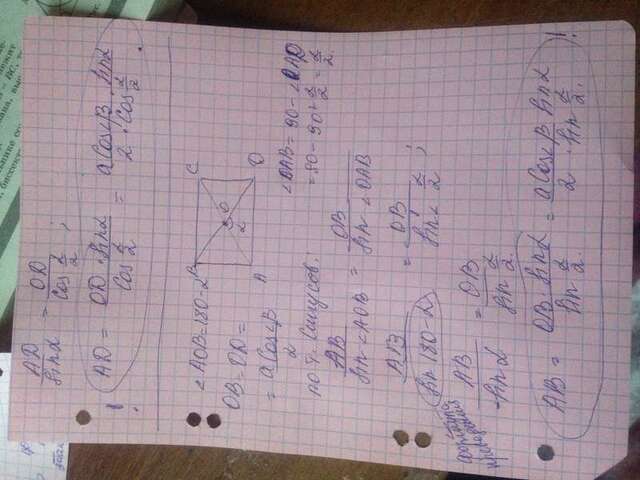 AD/sinα = OD/cos α/2 ;
AD = OD · sinα / cos α/2 = a cos∠β · sinα / 2 · cos α/2 .
!
∠AOB = 180 - α
B C
O
α
A D
OB = OD =
= a cos∠β / 2
∠OAB = 90 - ∠OAD
= 90 - 90 + α/2 = α/2.
по т. Синусов:
AB / sin∠AOB = OB / sin∠OAB
AB / sin 180 - α = OB / sin∠ α/2 ;
формула
приведения
AB / -sinα = OB / sin α/2.
AB = OB · sinα / sin α/2. = a cos∠β sinα / 2 · sin α/2. !